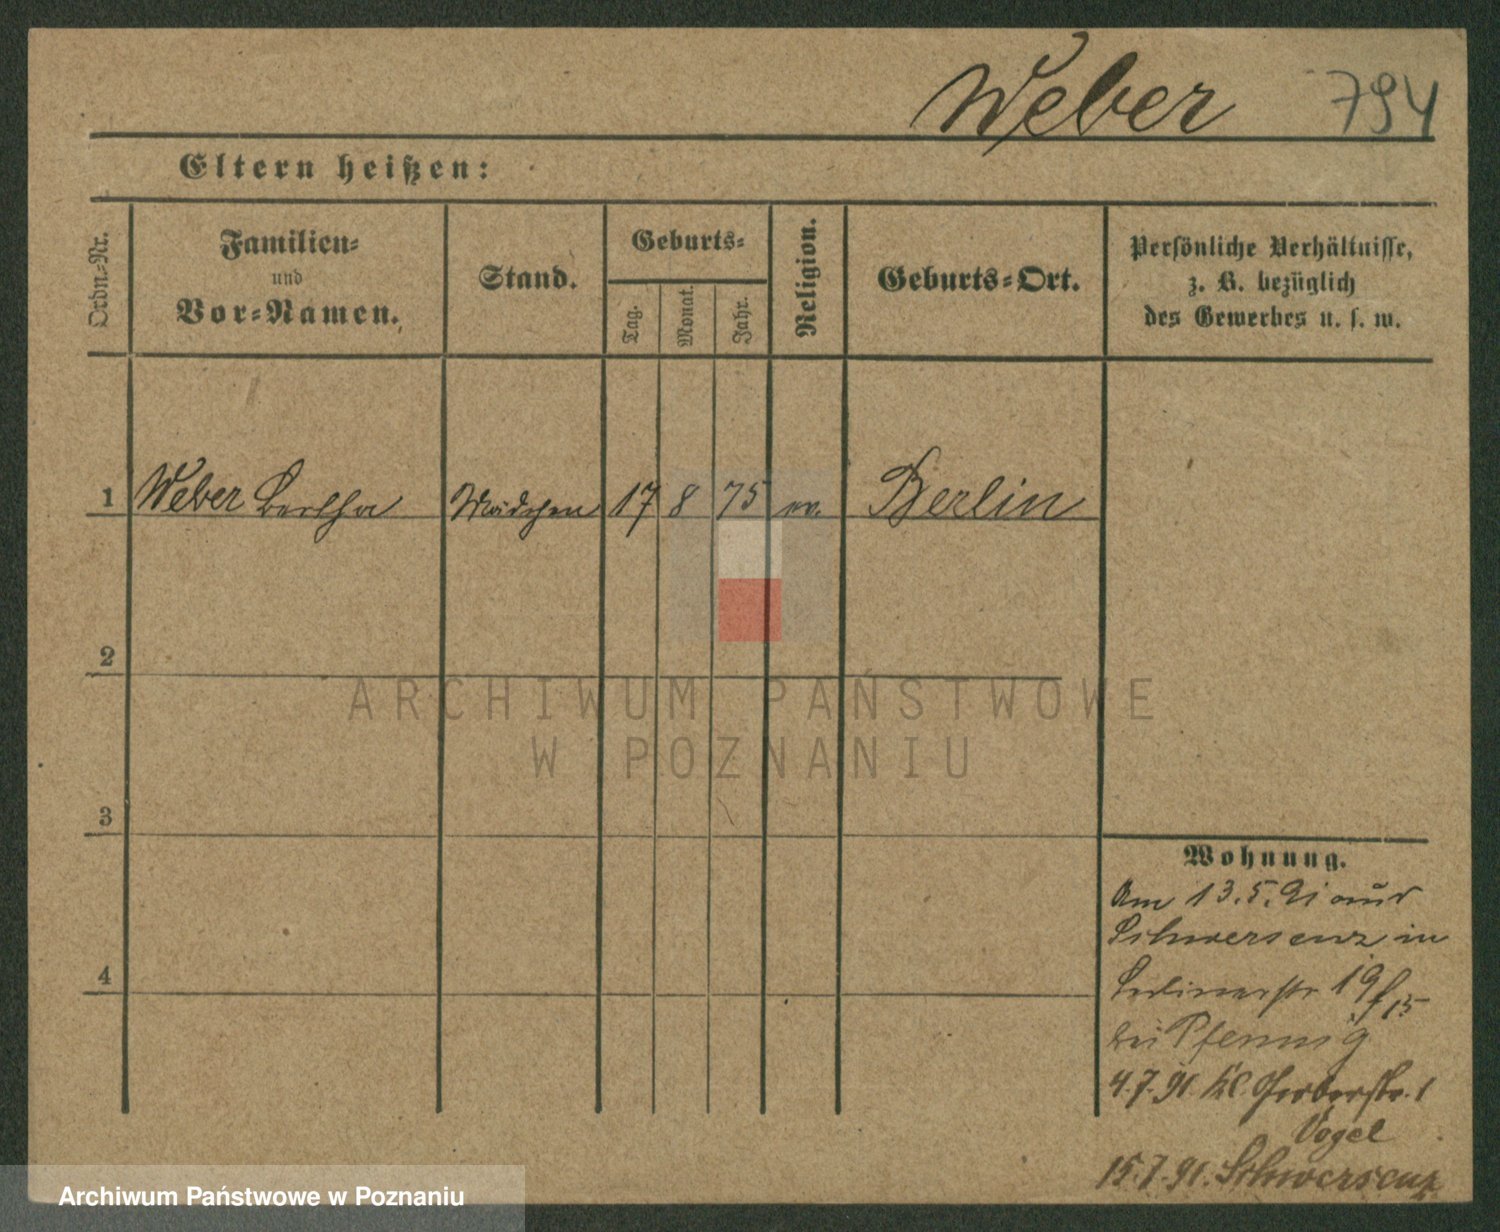 Weber 794
Eltern heißen:
Ordn=Nr.
Familien=
und
Vor=Namen.
Stand.
Geburts=
Tag.
Monat.
Jahr.
Religion.
Geburts=Ort.
Persönliche Verhältnisse,
z. B. bezüglich
des Gewerbes u. s. w.
1 Weber Bertha Mädchen 17 8 75 ev. Berlin
2
ARCHIWUM PAŃSTWOWE
W POZNANIU
3
4
Wohnung.
Am 13.5.91 aus
Schwersenz in
Berlinerstr 19
bei Pfennig
4.7.91. Kl. Gerberstr. 1
Vogel
15.7.91. Schwersenz
Archiwum Państwowe w Poznaniu